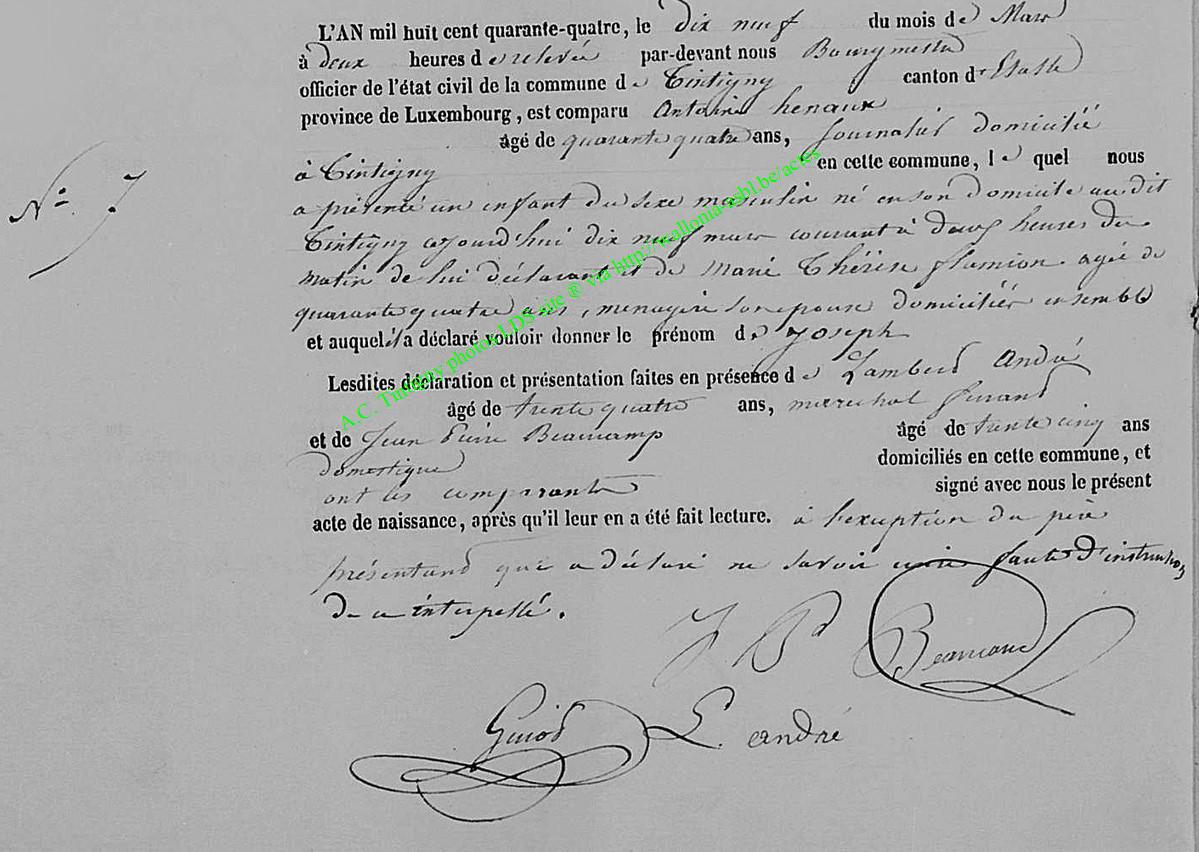 L'AN mil huit cent quarante-quatre, le dix neuf du mois de Mars
à deux heures de relevée par-devant nous Bourgmestre
officier de l'état civil de la commune de Tintigny canton d'Etalle
province de Luxembourg, est comparu Antoine henaux
âgé de quarante quatre ans, Journalier domicilié
à Tintigny en cette commune, le quel nous
N° 7
a présenté un enfant du sexe masculin né en son domicile au dit
Tintigny aujourd'hui dix neuf mars courant à deux heures du
matin de lui déclarant et de Marie Thérèse flamion agée de
quarante quatre ans, menagère son epouse domiciliés ensemble
et auquel il a déclaré vouloir donner le prénom de Joseph
Lesdites déclaration et présentation faites en présence de Lambert André
âgé de trente quatre ans, maréchal ferrant
et de Jean Pierre Beaucamp âgé de trente cinq ans
domestique domiciliés en cette commune, et
ont les comparants signé avec nous le présent
acte de naissance, après qu'il leur en a été fait lecture. à l'exception du père
présentant qui a déclaré ne savoir faute d'instruction
de ce interpellé.
J P Beaucamp
Guiot L. andré
A.C. Tintigny photos LDS site ® via http://wallonia-asbl.be/actes